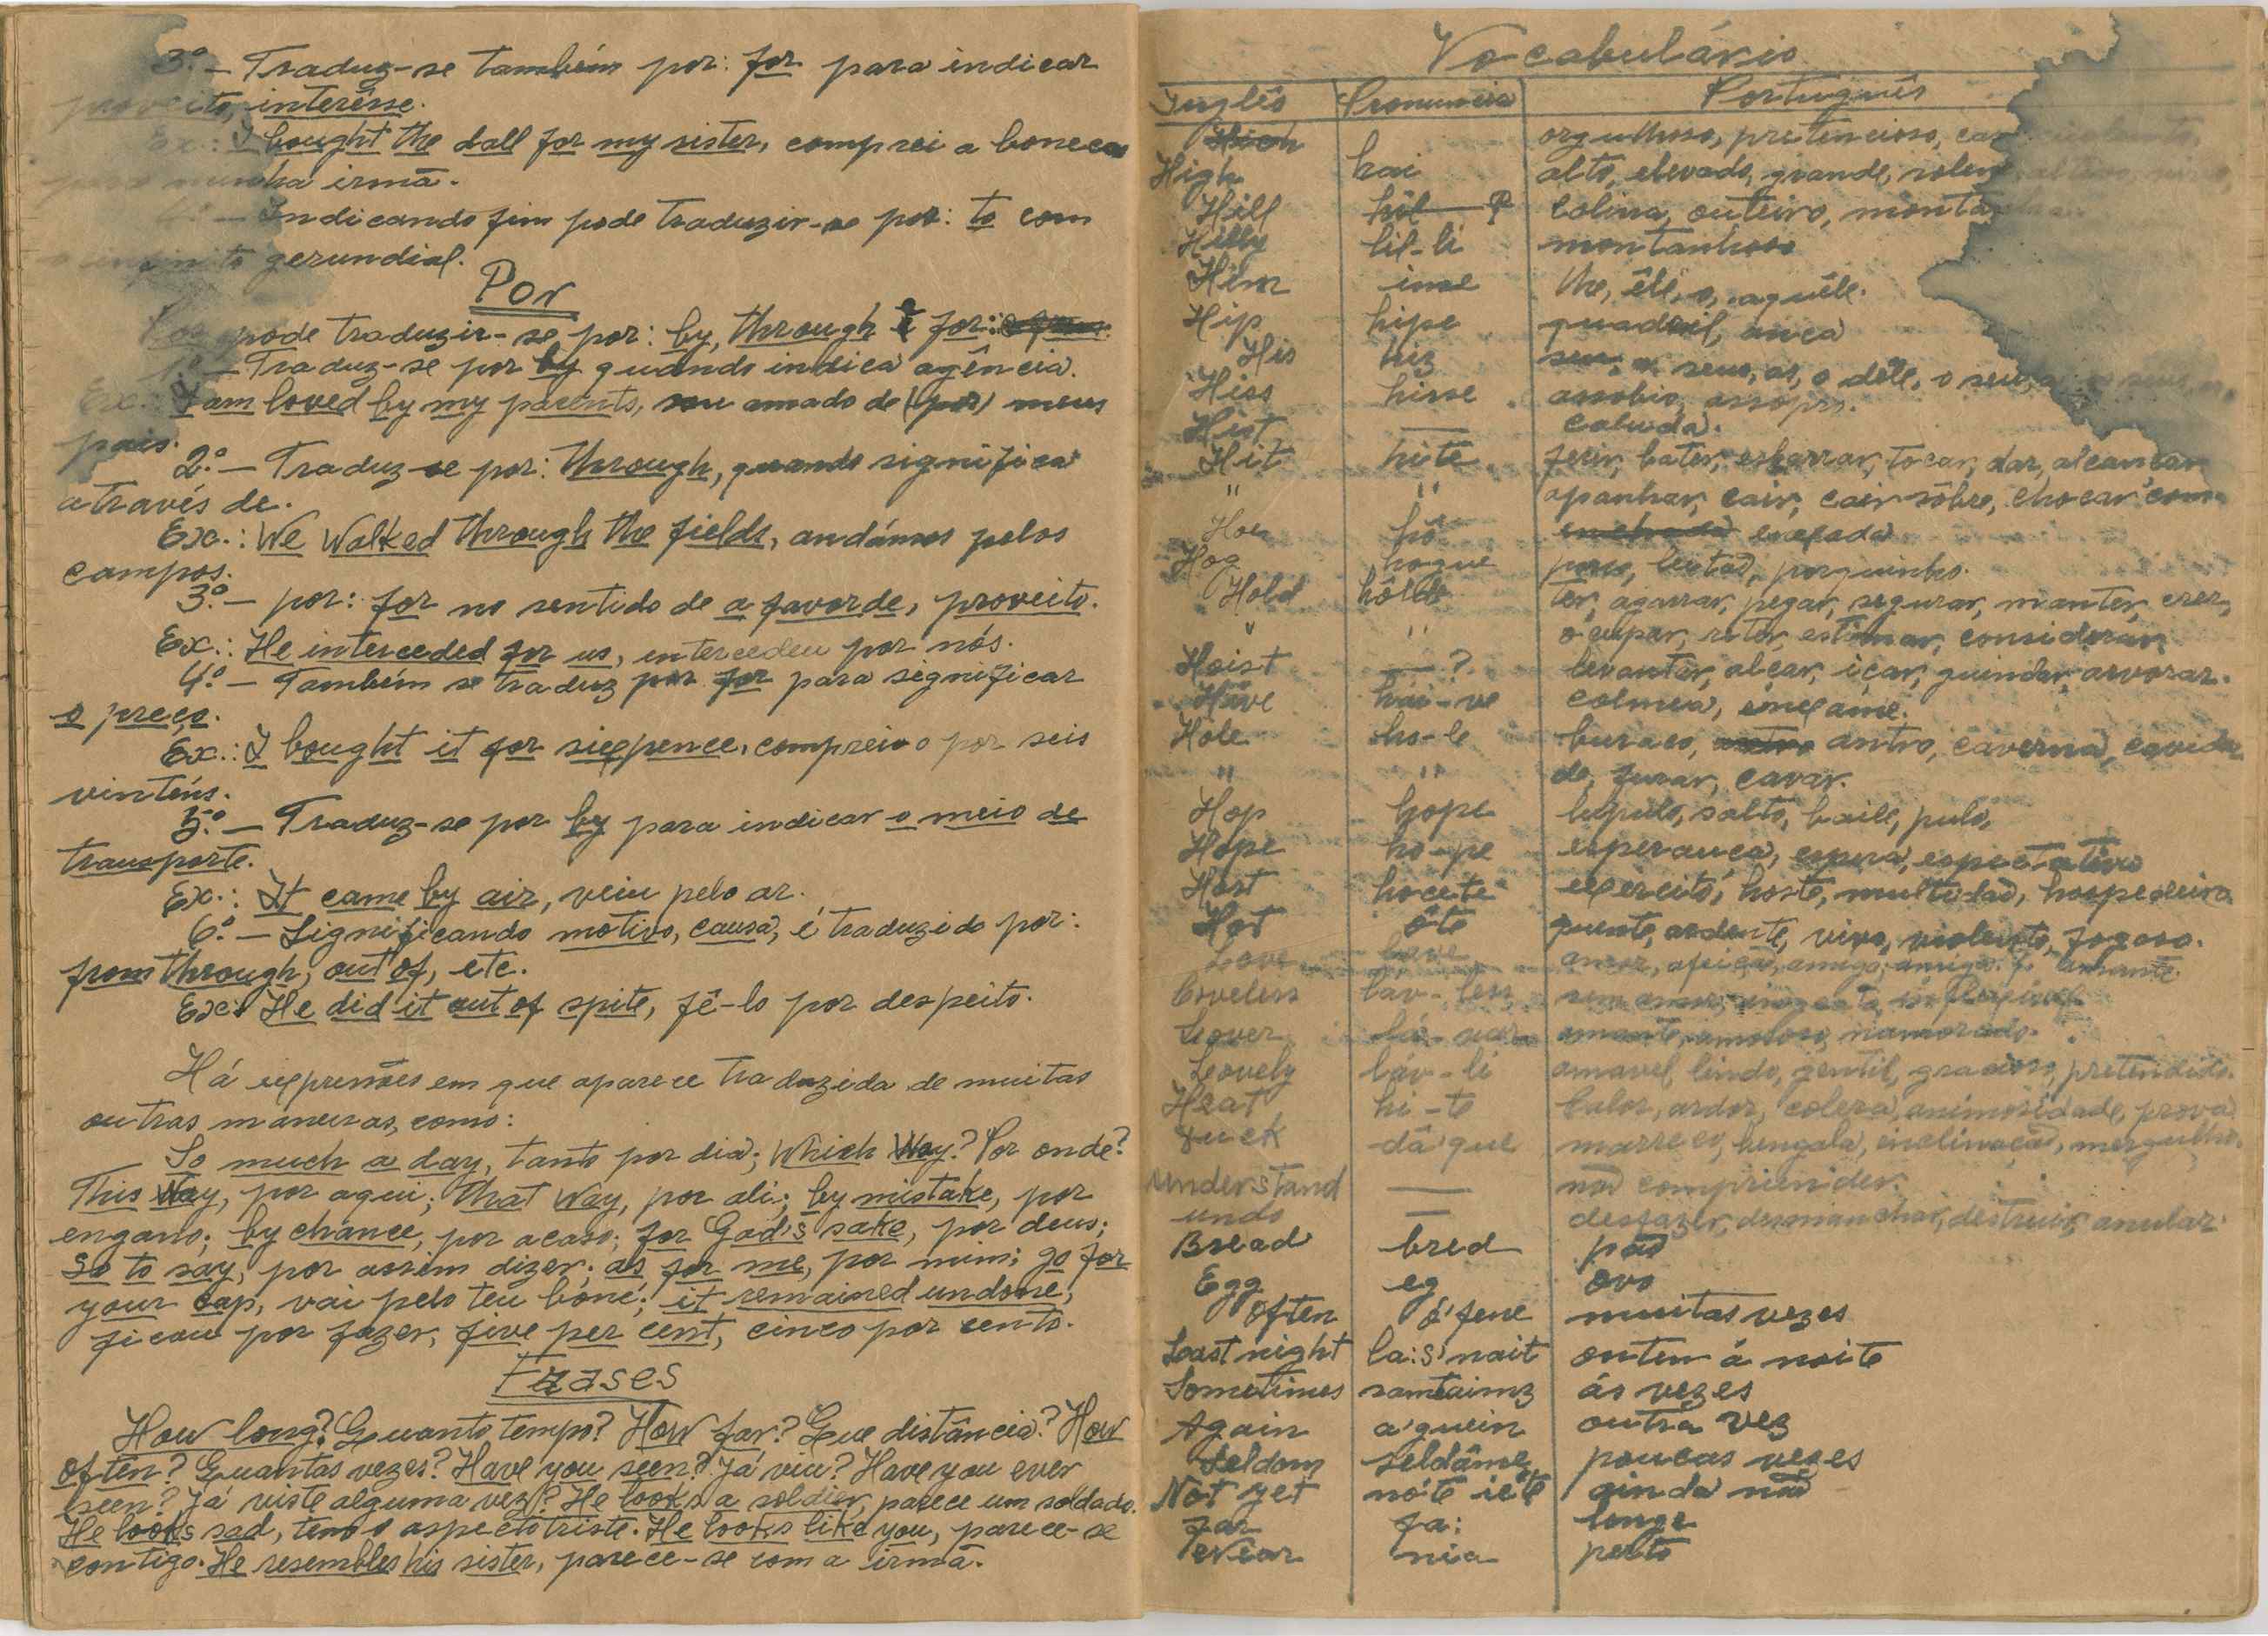 3.º — Traduz-se também por: for para indicar
proveito, interêsse.
Ex.: I bought the dall for my sister, comprei a boneca
para minha irmã.
4.º — Indicando fim pode traduzir-se por: to com
o infinito gerundial.
Por
Por pode traduzir-se por: by, through e for:
1.º — Traduz-se por by quando indica agência.
Ex.: I am loved by my parents, sou amado de (por) meus
pais.
2.º — Traduz-se por: through, quando significa
através de.
Ex.: We Walked through the fields, andámos pelos
campos.
3.º — por: for no sentido de a favor de, proveito.
Ex.: He interceded for us, intercedeu por nós.
4.º — Também se traduz por for para significar
o preço.
Ex.: I bought it for sixpence, comprei-o por seis
vinténs.
5.º — Traduz-se por by para indicar o meio de
transporte.
Ex.: It came by air, veiu pelo ar.
6.º — Significando motivo, causa, é traduzido por:
from through, out of, etc.
Ex: He did it out of spite, fê-lo por despeito.
Há expressões em que aparece traduzida de muitas
outras maneiras, como:
So much a day, tanto por dia; Which Way? Por onde?
This Way, por aqui; that Way, por ali; by mistake, por
engano; by chance, por acaso; for God's sake, por deus;
So to say, por assim dizer; as for me, por mim; go for
your cap, vai pelo teu boné; it remained undone,
ficou por fazer, five per cent, cinco por cento.
Frases
How long? Quanto tempo? How far? Que distância? How
often? Quantas vezes? Have you seen? Já viu? Have you ever
seen? Já viste alguma vez? He looks a soldier, parece um soldado.
He looks sad, tem o aspecto triste. He looks like you, parece-se
contigo. He resembles his sister, parece-se com a irmã.
Vocabulário
Inglês Pronuncia Português
High hai orgulhoso, pretencioso,
alto, elevado, grande, solene
Hill hil colina, outeiro, montanha
Hilly hil-li montanhoso
Him ime lhe, êle, o, aquêle.
Hip hipe quadril, anca
His hiz seu, a, seus, as, o dêle, o seu, a
Hiss hisse assobio, assopro.
Hist — caluda.
Hit hite ferir, bater, esbarrar, tocar, dar, alcançar
" " apanhar, cair, cair sôbre, chocar com
Hoe hô enxada
Hog hogue porco, leitão, porquinho.
Hold hôlde ter, agarrar, pegar, segurar, manter, crer,
" " ocupar, reter, estimar, considerar,
Hoist —? levantar, alçar, içar, guindar, arvorar.
Hive hai-ve colmeia, enxame.
Hole ho-le buraco, antro, caverna, cavida
" " de, furar, cavar.
Hop hope lupulo, salto, baile, pulo,
Hope ho-pe esperança, espera, espectativa
Host hocete exército, hoste, multidão, hospedeiro
Hot óte quente, ardente, vivo, violento, fogoso.
Love lave amor, afeição, amigo, amiga. amante.
Loveless lav-less sem amor, inflexível
Lover lá-var amante, amoroso, namorado.
Lovely láv-li amavel, lindo, gentil, gracioso, pretendido.
Heat hi-te calor, ardor, colera, animosidade, prova
Duck dâ'que marreco, bengala, inclinação, mergulho,
Understand — não compriender.
undo — desfazer, desmanchar, destruir, anular.
Bread bred pão
Egg eg ovo
Often ó'fene muitas vezes
Last night la:s'nait ontem á noite
Sometimes samtaimz ás vezes
Again a'guein outra vez
Seldom seldâme poucas vezes
Not yet nóte iéte ainda não
Far fa: longe
Near nia perto